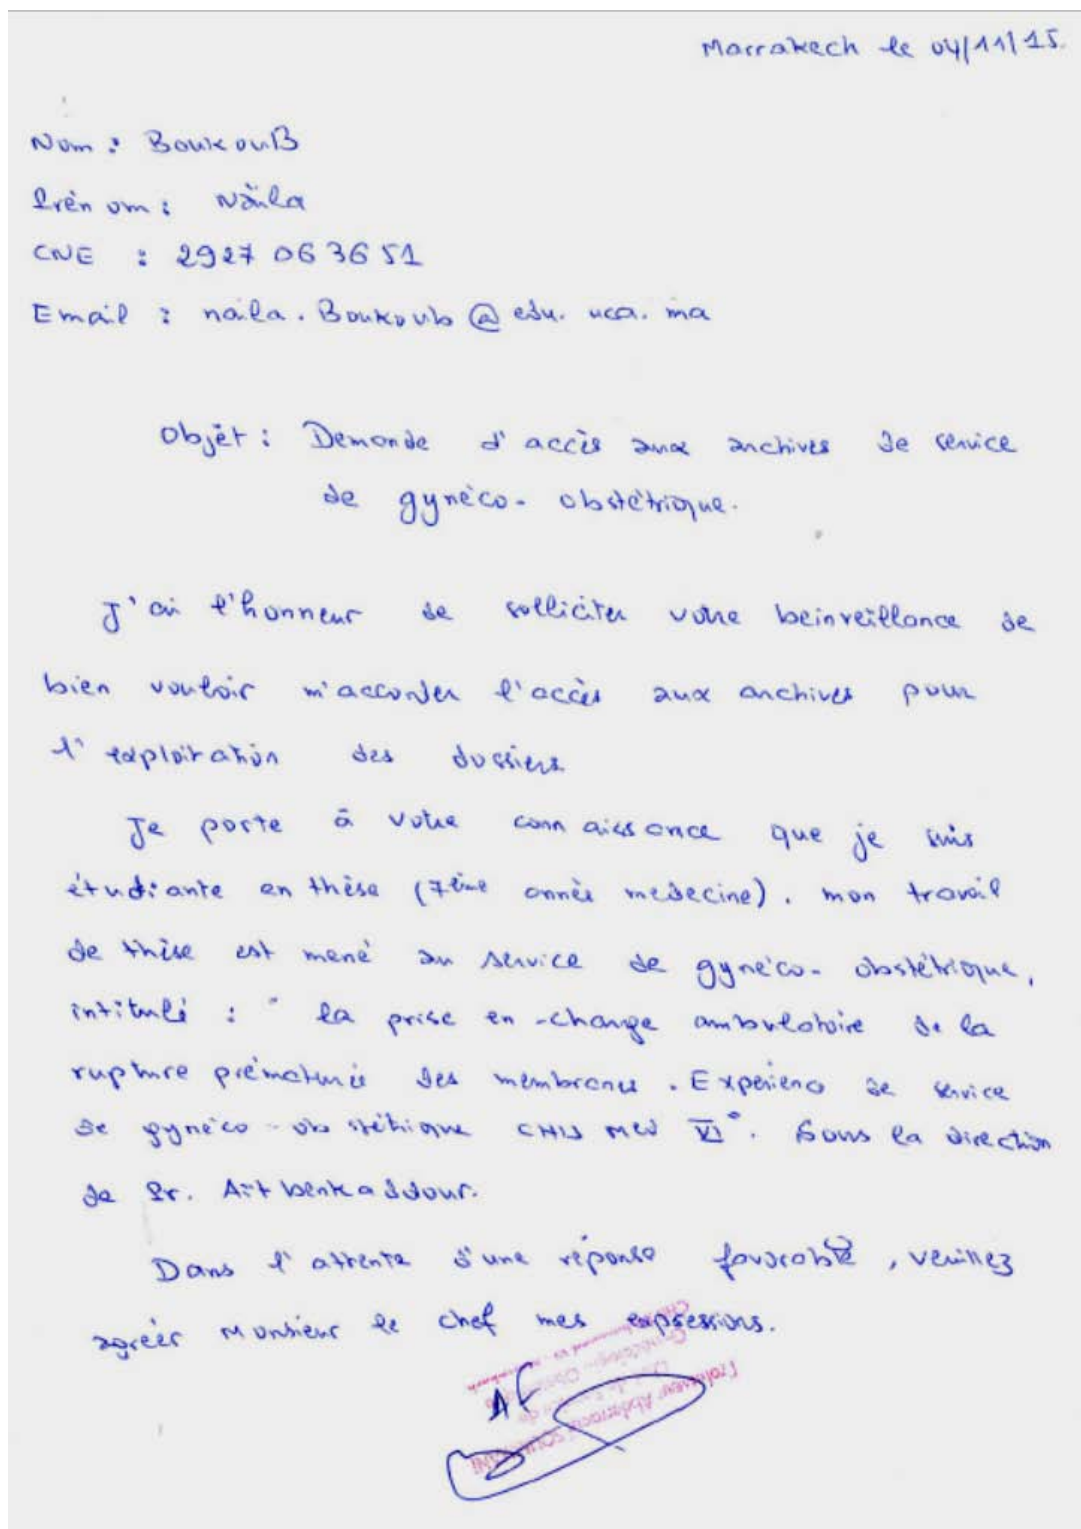 Marrakech le 04/11/15.
Nom : BoukouB
Prénom : Naïla
CNE : 2927 063651
Email : naila.Boukoub@edu.uca.ma
Objet : Demande d'accès aux archives de service
de gynéco-obstétrique.
J'ai l'honneur de solliciter votre beinveillance de
bien vouloir m'accorder l'accès aux archives pour
l'exploitation des dossiers
Je porte à votre connaissance que je suis
étudiante en thèse (7ème année medecine). mon travail
de thèse est mené au service de gynéco-obstétrique,
intitulé : " la prise en-charge ambulatoire de la
rupture prématurée des membranes. Experience de service
de gynéco-obstétrique CHU Med VI". Sous la direction
de Pr. Aït benkaddour.
Dans l'attente d'une réponse favorable, veuillez
agréer Monsieur le chef mes expressions.
Professeur Abderraouf SOUMMANI